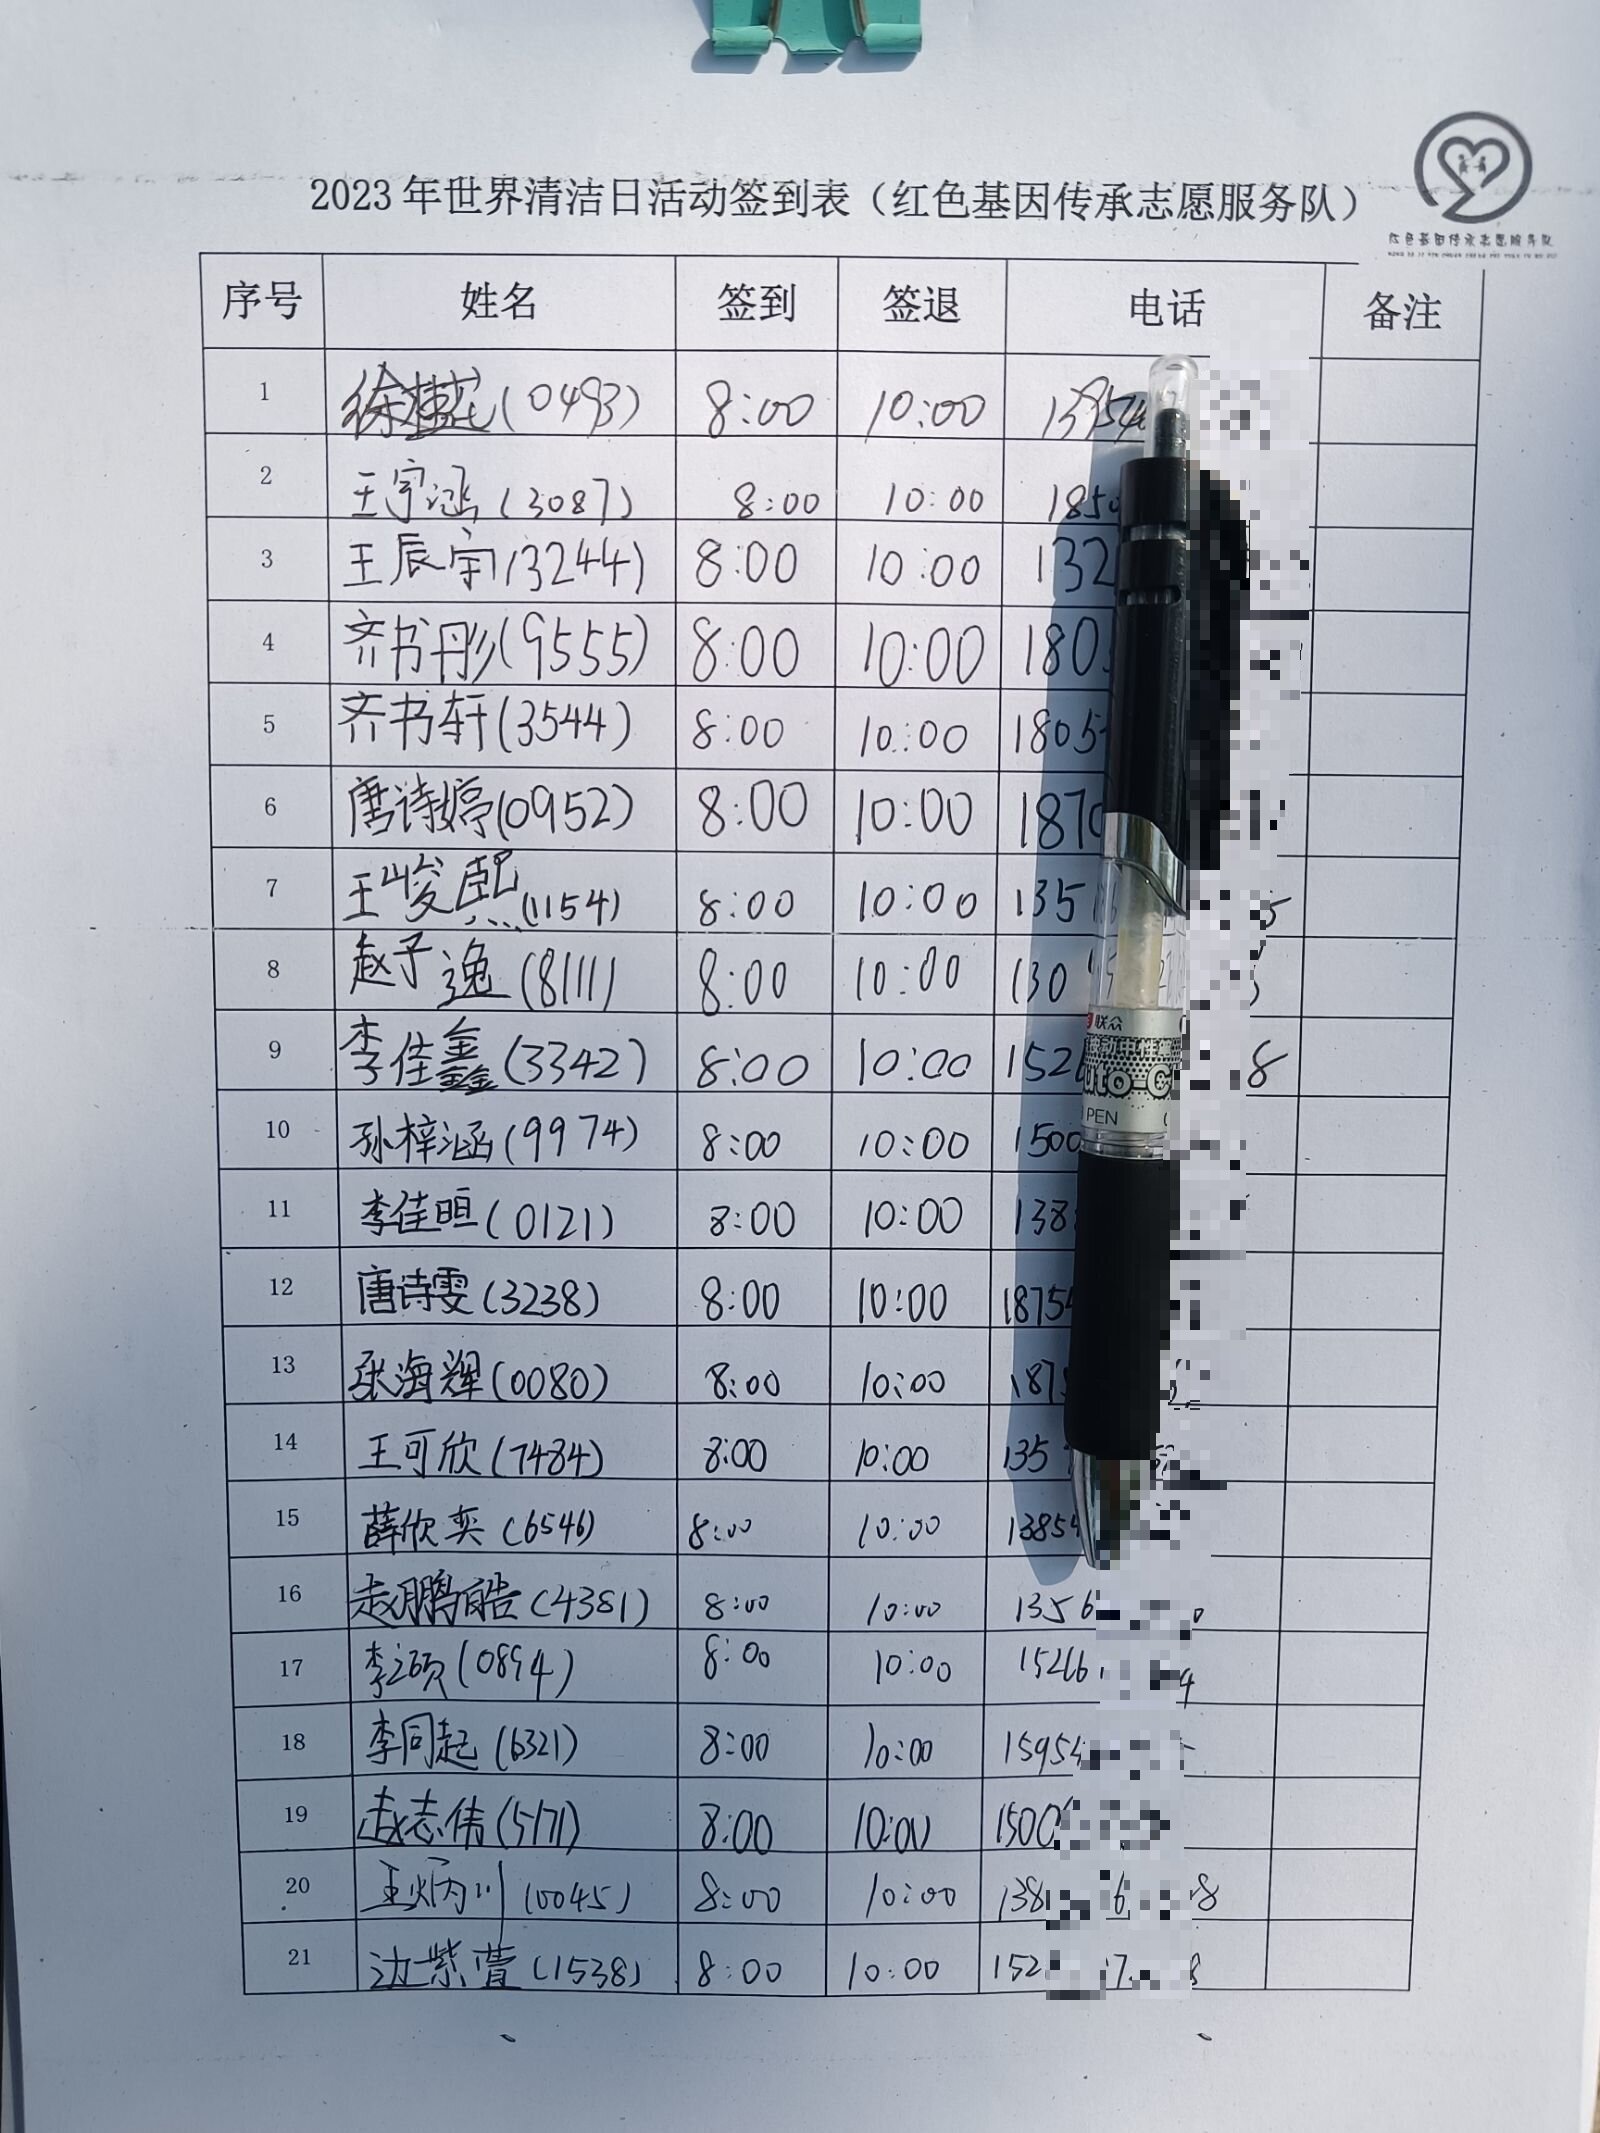 2023年世界清洁日活动签到表（红色基因传承志愿服务队）
红色基因传承志愿服务队
序号 姓名 签到 签退 电话 备注
1 徐桂花(0493) 8:00 10:00 13954
2 王宇涵(3087) 8:00 10:00 185
3 王辰宇(3244) 8:00 10:00 132
4 齐书彤(9555) 8:00 10:00 180
5 齐书轩(3544) 8:00 10:00 1805
6 唐诗婷(0952) 8:00 10:00 187
7 王峻熙(1154) 8:00 10:00 135 5
8 赵子逸(8111) 8:00 10:00 130
9 李佳鑫(3342) 8:00 10:00 152 8
10 孙梓涵(9974) 8:00 10:00 1500
11 李佳晅(0121) 8:00 10:00 138
12 唐诗雯(3238) 8:00 10:00 1875
13 张海辉(0080) 8:00 10:00 187
14 王可欣(7484) 8:00 10:00 135
15 薛欣奕(6546) 8:00 10:00 1385
16 赵鹏皓(4381) 8:00 10:00 1356
17 李颂(0894) 8:00 10:00 15266 4
18 李同起(6321) 8:00 10:00 15954
19 赵志伟(5171) 8:00 10:00 1500
20 王炳川(0045) 8:00 10:00 138 6 8
21 边紫萱(1538) 8:00 10:00 152 7 8
联众
PEN